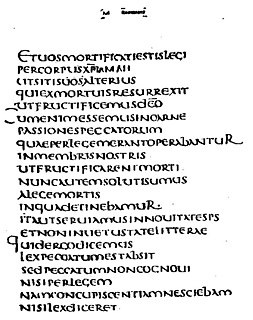 ETUOSMORTIFICATIESTISLEGI
PERCORPUSXPIAMAII
UTSITISUOSALTERIUS
QUIEXMORTUISRESURREXIT
UTFRUCTIFICEMUSDEO
CUMENIMESSEMUSINCARNE
PASSIONESPECCATORUM
QUAEPERLEGEMERANTOPERABANTUR
INMEMBRISNOSTRIS
UTFRUCTIFICARENTMORTI
NUNCAUTEMSOLUTISUMUS
ALEGEMORTIS
INQUADETINEBAMUR
ITAUTSERUIAMUSINNOUITATESPS
ETNONINUETUSTATELITTERAE
QUIDERGODICEMUS
LEXPECCATUMESTABSIT
SEDPECCATUMNONCOGNOUI
NISIPERLEGEM
NAMCONCUPISCENTIAMNESCIEBAM
NISILEXDICERET